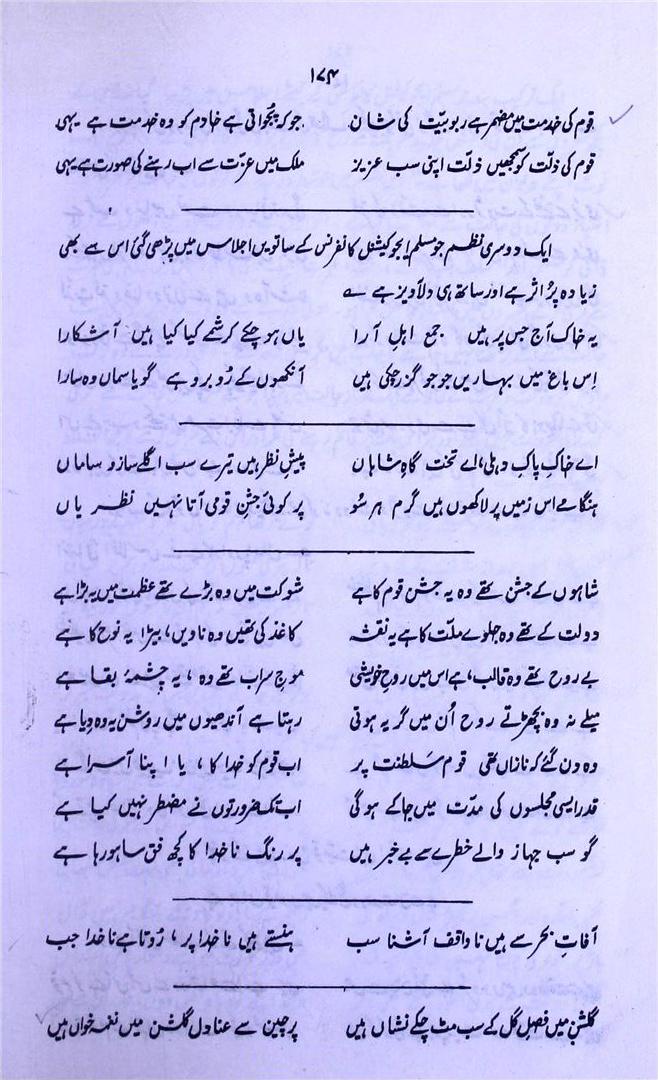 ۱۷۴
قوم کی خدمت میں مضمر ہے ربوبیّت کی شان جو کہ پُجواتی ہے خادم کو وہ خدمت ہے یہی
قوم کی ذلّت کو سمجھیں ذلّت اپنی سب عزیز ملک میں عزّت سے اب رہنے کی صورت ہے یہی
ایک دوسری نظم جو مسلم ایجوکیشنل کانفرنس کے ساتویں اجلاس میں پڑھی گئی اس سے بھی
زیادہ پُر اثر ہے اور ساتھ ہی دلآویز ہے ؎
یہ خاک آج جس پر ہیں جمع اہلِ آرا یاں ہو چکے کرشمے کیا کیا ہیں آشکارا
اِس باغ میں بہاریں جو جو گزر چکی ہیں آنکھوں کے رُوبرو ہے گویا سماں وہ سارا
اے خاکِ پاکِ دہلی، اے تخت گاہِ شاہاں پیشِ نظر ہیں تیرے سب اگلے ساز و ساماں
ہنگامے اس زمیں پر لاکھوں ہیں گرم ہر سُو پر کوئی جشنِ قومی آتا نہیں نظر یاں
شاہوں کے جشن تھے وہ یہ جشن قوم کا ہے شوکت میں وہ بڑے تھے عظمت میں یہ بڑا ہے
دولت کے تھے وہ جلوے ملّت کا ہے یہ نقشہ کاغذ کی تھیں وہ ناویں، بیڑا یہ نوح کا ہے
بے روح تھے وہ قالب، ہے اس میں روحِ خویشی موجِ سراب تھے وہ، یہ چشمۂ بقا ہے
میلے نہ وہ بچھڑتے روح اُن میں گر یہ ہوتی رہتا ہے آندھیوں میں روشن یہ وہ دِیا ہے
وہ دن گئے کہ نازاں تھی قوم سَلطنت پر اب قوم کو خدا کا، یا اپنا آسرا ہے
قدر ایسی مجلسوں کی مدّت میں جا کے ہوگی اب تک ضرورتوں نے مضطر نہیں کیا ہے
گو سب جہاز والے خطرے سے بے خبر ہیں پر رنگ ناخدا کا کچھ فق سا ہو رہا ہے
آفاتِ بحر سے ہیں ناواقف آشنا سب ہنستے ہیں ناخدا پر، رُوتا ہے ناخدا جب
گلشن میں فصلِ گل کے سب مٹ چکے نشاں ہیں پر چین سے عنادل گلشن میں نغمہ خواں ہیں